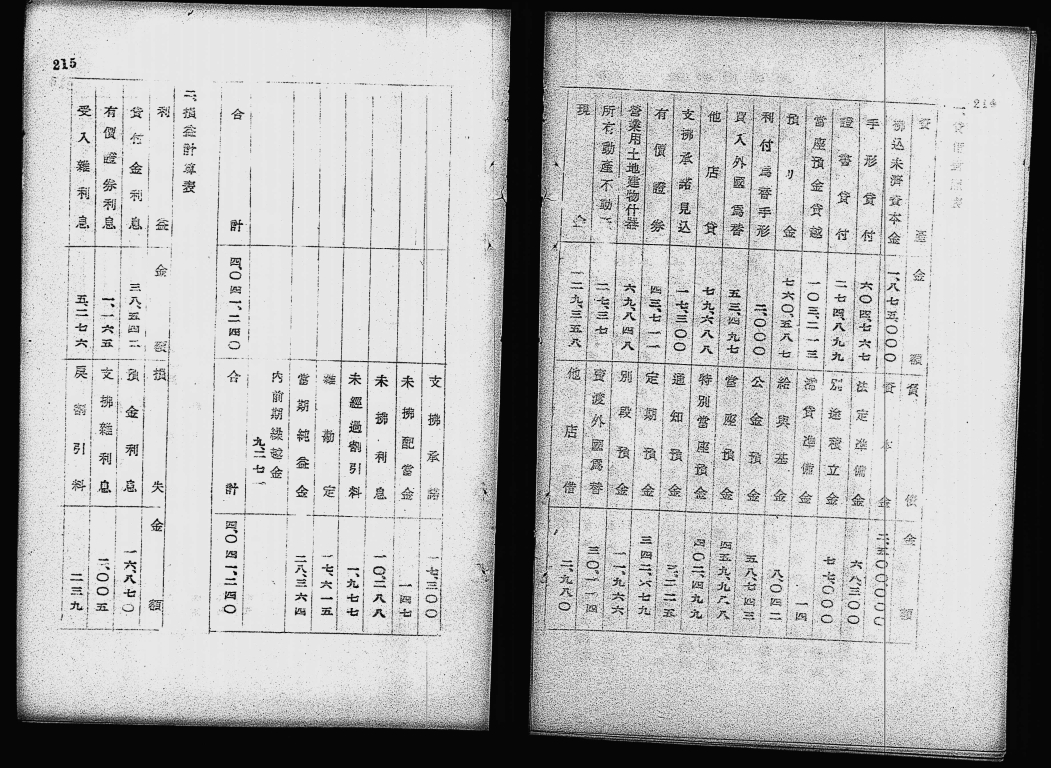 214
一、貸借對照表
資產 金額 負債 金額
拂込未濟資本金 一、八七五、〇〇〇 資本金 二、五〇〇、〇〇〇
手形貸付 六〇四、七六七 法定準備金 六八、三〇〇
證書貸付 二七四、八九九 別途積立金 七七、〇〇〇
當座預金貸越 一〇三、二一三 滯貸準備金 一四
預ケ金 七六〇、五八七 給與基金 八、〇四二
利付爲替手形 二、〇〇〇 公金預金 五八、七四三
買入外國爲替 五三、四九七 當座預金 四五九、九八八
他店貸 七九、六八八 特別當座預金 四〇二、四九九
支拂承諾見込 一七、三〇〇 通知預金 三、二二五
有價證券 四三、七一一 定期預金 三四二、六七九
營業用土地建物什器 六九、八四八 別段預金 一一、九六六
所有動產不動產 二七、三七二 賣渡外國爲替 三〇、一一四
現金 一二九、三五八 他店借 二、九八〇
215
支拂承諾 一七、三〇〇
未拂配當金 一四七
未拂利息 一〇、二八八
未經過割引料 一、九七七
雜勘定 一七、六一五
當期純益金 二八、三六四
內前期繰越金
九、二七一
合計 四、〇四一、二四〇 合計 四、〇四一、二四〇
二、損益計算表
利益 金額 損失 金額
貸付金利息 三八、五四二 預金利息 一六、八七〇
有價證券利息 一、一六五 支拂雜利息 二、〇〇五
受入雜利息 五、二七六 戾割引料 二三九